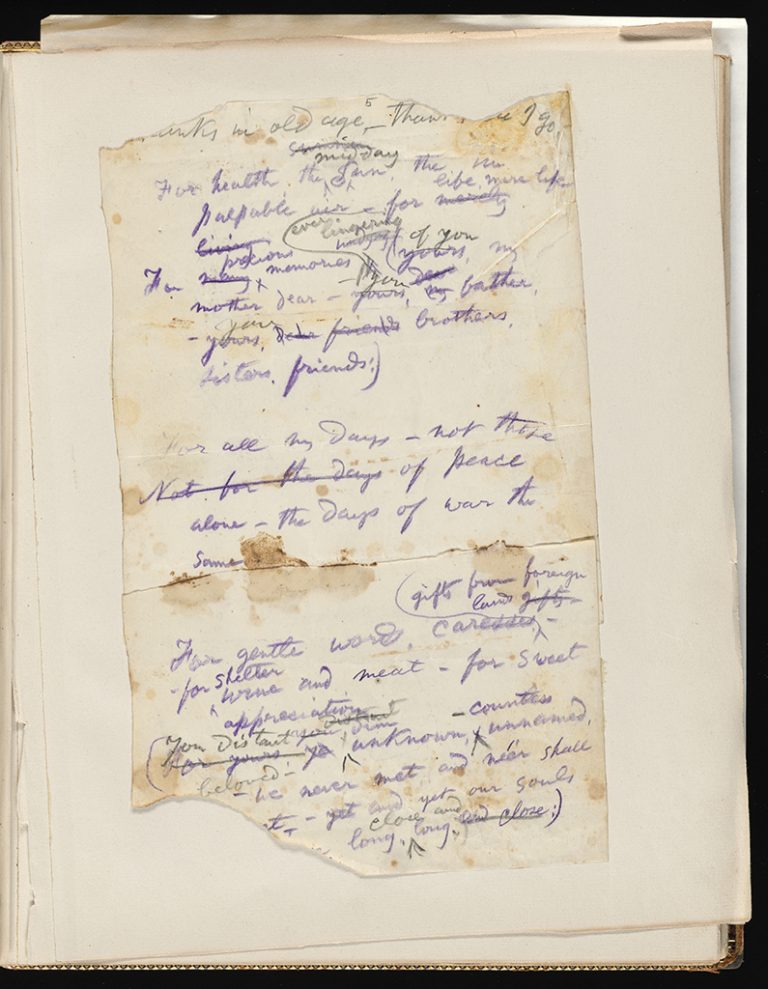 5
anks in old age, – than e I go,
summer
midday
For health, the Sun, the
life, mere life
palpable air – for merely
living
ever lingering
precious
of you
(yours, my
For many memories – you dear
mother dear – yours, my father,
your
– yours, dear friends brothers,
sisters, friends:)
For all my days – not those
Not for the days of peace
alone – the days of war the
same
(gifts from foreign
lands gifts –
For gentle words, caresses, –
– for shelter
wine and meat – for sweet
appreciation
distant
(You distant, you dim – countless
For yours – ye unknown, unnamed,
beloved –
– we never met, and ne'er shall
et – yet and yet our souls
close and
long, long, and close:)